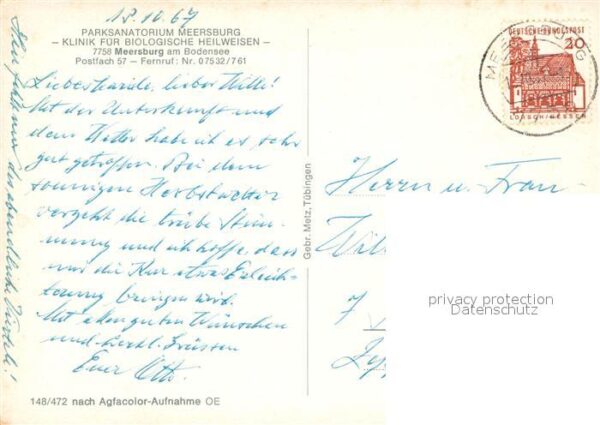 13.10.67
PARKSANATORIUM MEERSBURG
– KLINIK FÜR BIOLOGISCHE HEILWEISEN –
7758 Meersburg am Bodensee
Postfach 57 – Fernruf: Nr. 07532/761
Liebe lieber Willi!
Mit der Unterkunft und
dem Wetter habe ich es sehr
gut getroffen. Bei dem
sonnigen Herbstwetter
vergeht die trübe Stim-
mung und ich hoffe, dass
mir die Kur etwas Erleich-
terung bringen wird.
Mit allen guten Wünschen
und herzl. Grüssen
Euer Otto.
fehlt mir das abendliche
148/472 nach Agfacolor-Aufnahme OE
Gebr. Metz, Tübingen
DEUTSCHE BUNDESPOST
20
LORSCH/HESSEN
MEERSBURG
Herrn u. Frau
Will
7
privacy protection
Datenschutz